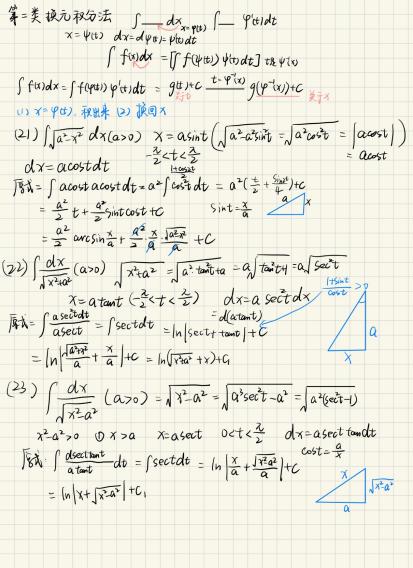 第二类换元积分法 ∫ ___ dx x=φ(t) ∫ ___ φ'(t)dt
x=ψ(t) dx=dψ(t)=ψ'(t)dt
∫f(x)dx = [∫f(ψ(t))ψ'(t)dt]
∫f(x)dx=∫f(φ(t))φ'(t)dt = g(t)+C t=φ⁻¹(x) g(φ⁻¹(x))+C
关于t 关于x
(1) x=φ(t). 积出来 (2) 换回x
(21) ∫√(a²-x²) dx (a>0) x=asint (√(a²-a²sin²t)=√(a²cos²t)=|acost|
-π/2<t<π/2 =acost
dx=acostdt (1+cos2t)/2
原式=∫acost acostdt=a²∫cos²t dt = a²(t/2+sin2t/4)+C
= a²/2 t + a²/2 sintcost+C sint=x/a a x
= a²/2 arcsin x/a + a²/2 · x/a · √(a²-x²)/a + C
(22) ∫dx/√(x²+a²) (a>0) √(x²+a²)=√(a²tan²t+a²)=a√(tan²t+1)=a√(sec²t)
x=atant (-π/2<t<π/2) dx=asec²t dx (1+sint)/cost >0
=d(atant)
原式=∫asec²tdt/asect=∫sectdt=ln|sect+tant|+C
= ln|√(a²+x²)/a + x/a|+C = ln(√(x²+a²)+x)+C₁ a x
(23) ∫dx/√(x²-a²) (a>0) = √(x²-a²)=√(a²sec²t-a²)=√(a²(sec²t-1))
x²-a²>0 ① x>a x=asect 0<t<π/2 dx=asect tantdt
cost=a/x
原式: ∫asecttant/atant dt=∫sectdt= ln|x/a+√(x²-a²)/a|+C
= ln|x+√(x²-a²)|+C₁ x √(x²-a²) a